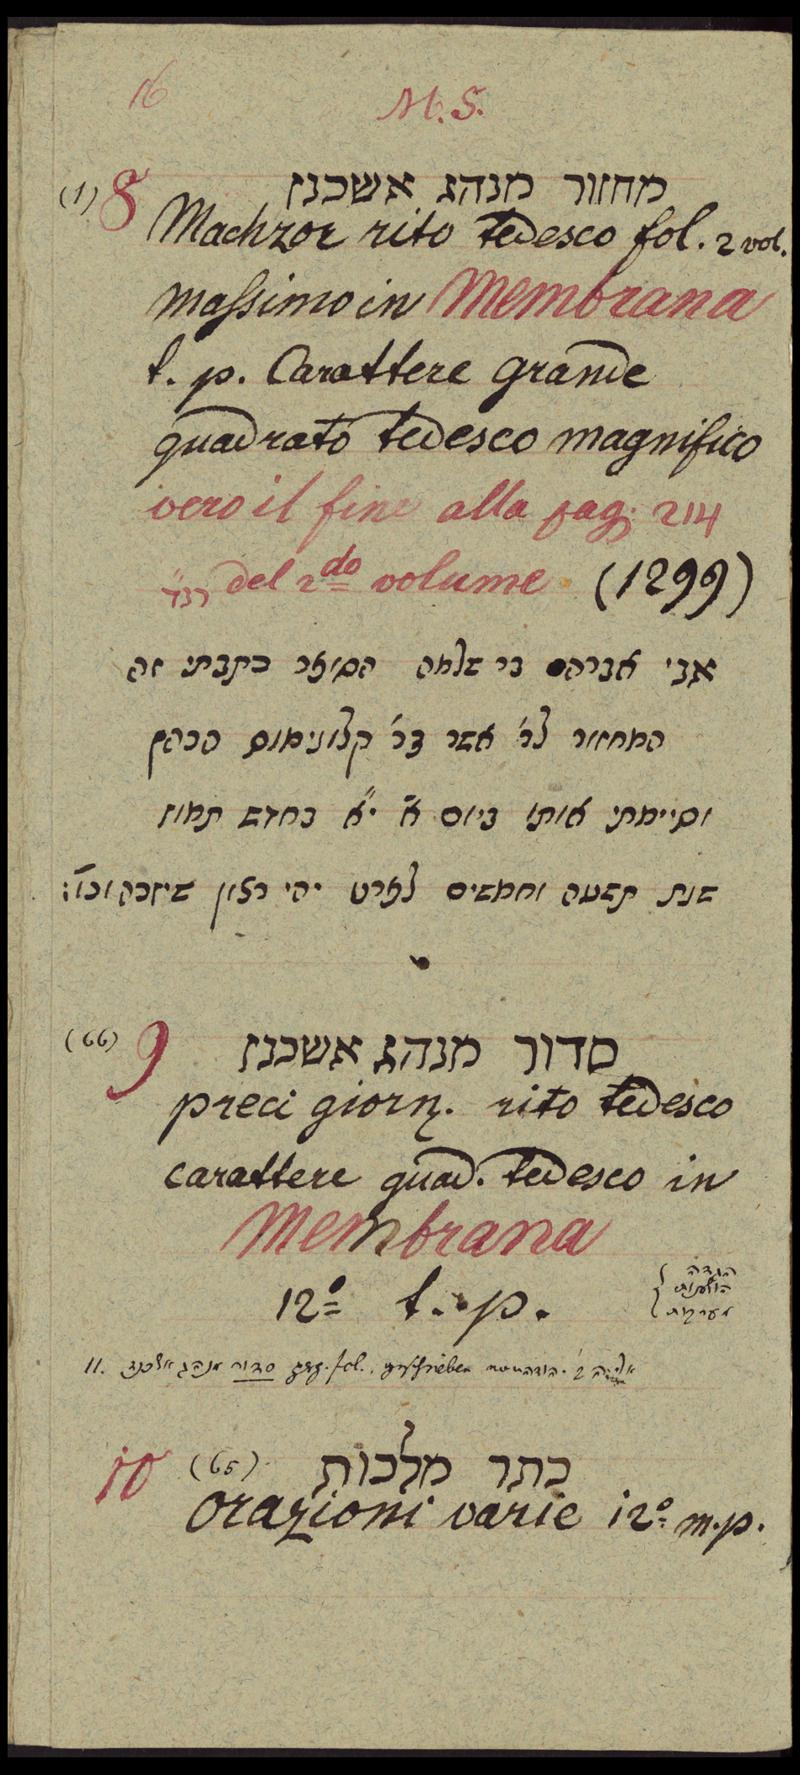 16
M. S.
(1) 8 מחזור מנהג אשכנז
Machzor rito tedesco fol. 2 vol.
massimo in Membrana
t. p. Carattere grande
quadrato tedesco magnifico
vero il fine alla pag: 214
רנד del 2do volume (1299)
אני אברהם בר שלמה הסופר כתבתי זה
המחזור לר׳ אשר בר׳ קלונימוס הכהן
וסיימתי אותו ביום א׳ י״א בחדש תמוז
שנת תשעה וחמשים לפרט יהי רצון שיזכהו וכו׳:
(66) 9 סדור מנהג אשכנז
preci giorn. rito tedesco
carattere quad. tedesco in
Membrana
12º t. p.
הגדה
הושענות
מערבות
11. סדור מנהג אשכנז fol. geschrieben
10 (65) כתר מלכות
orazioni varie 12º m.p.